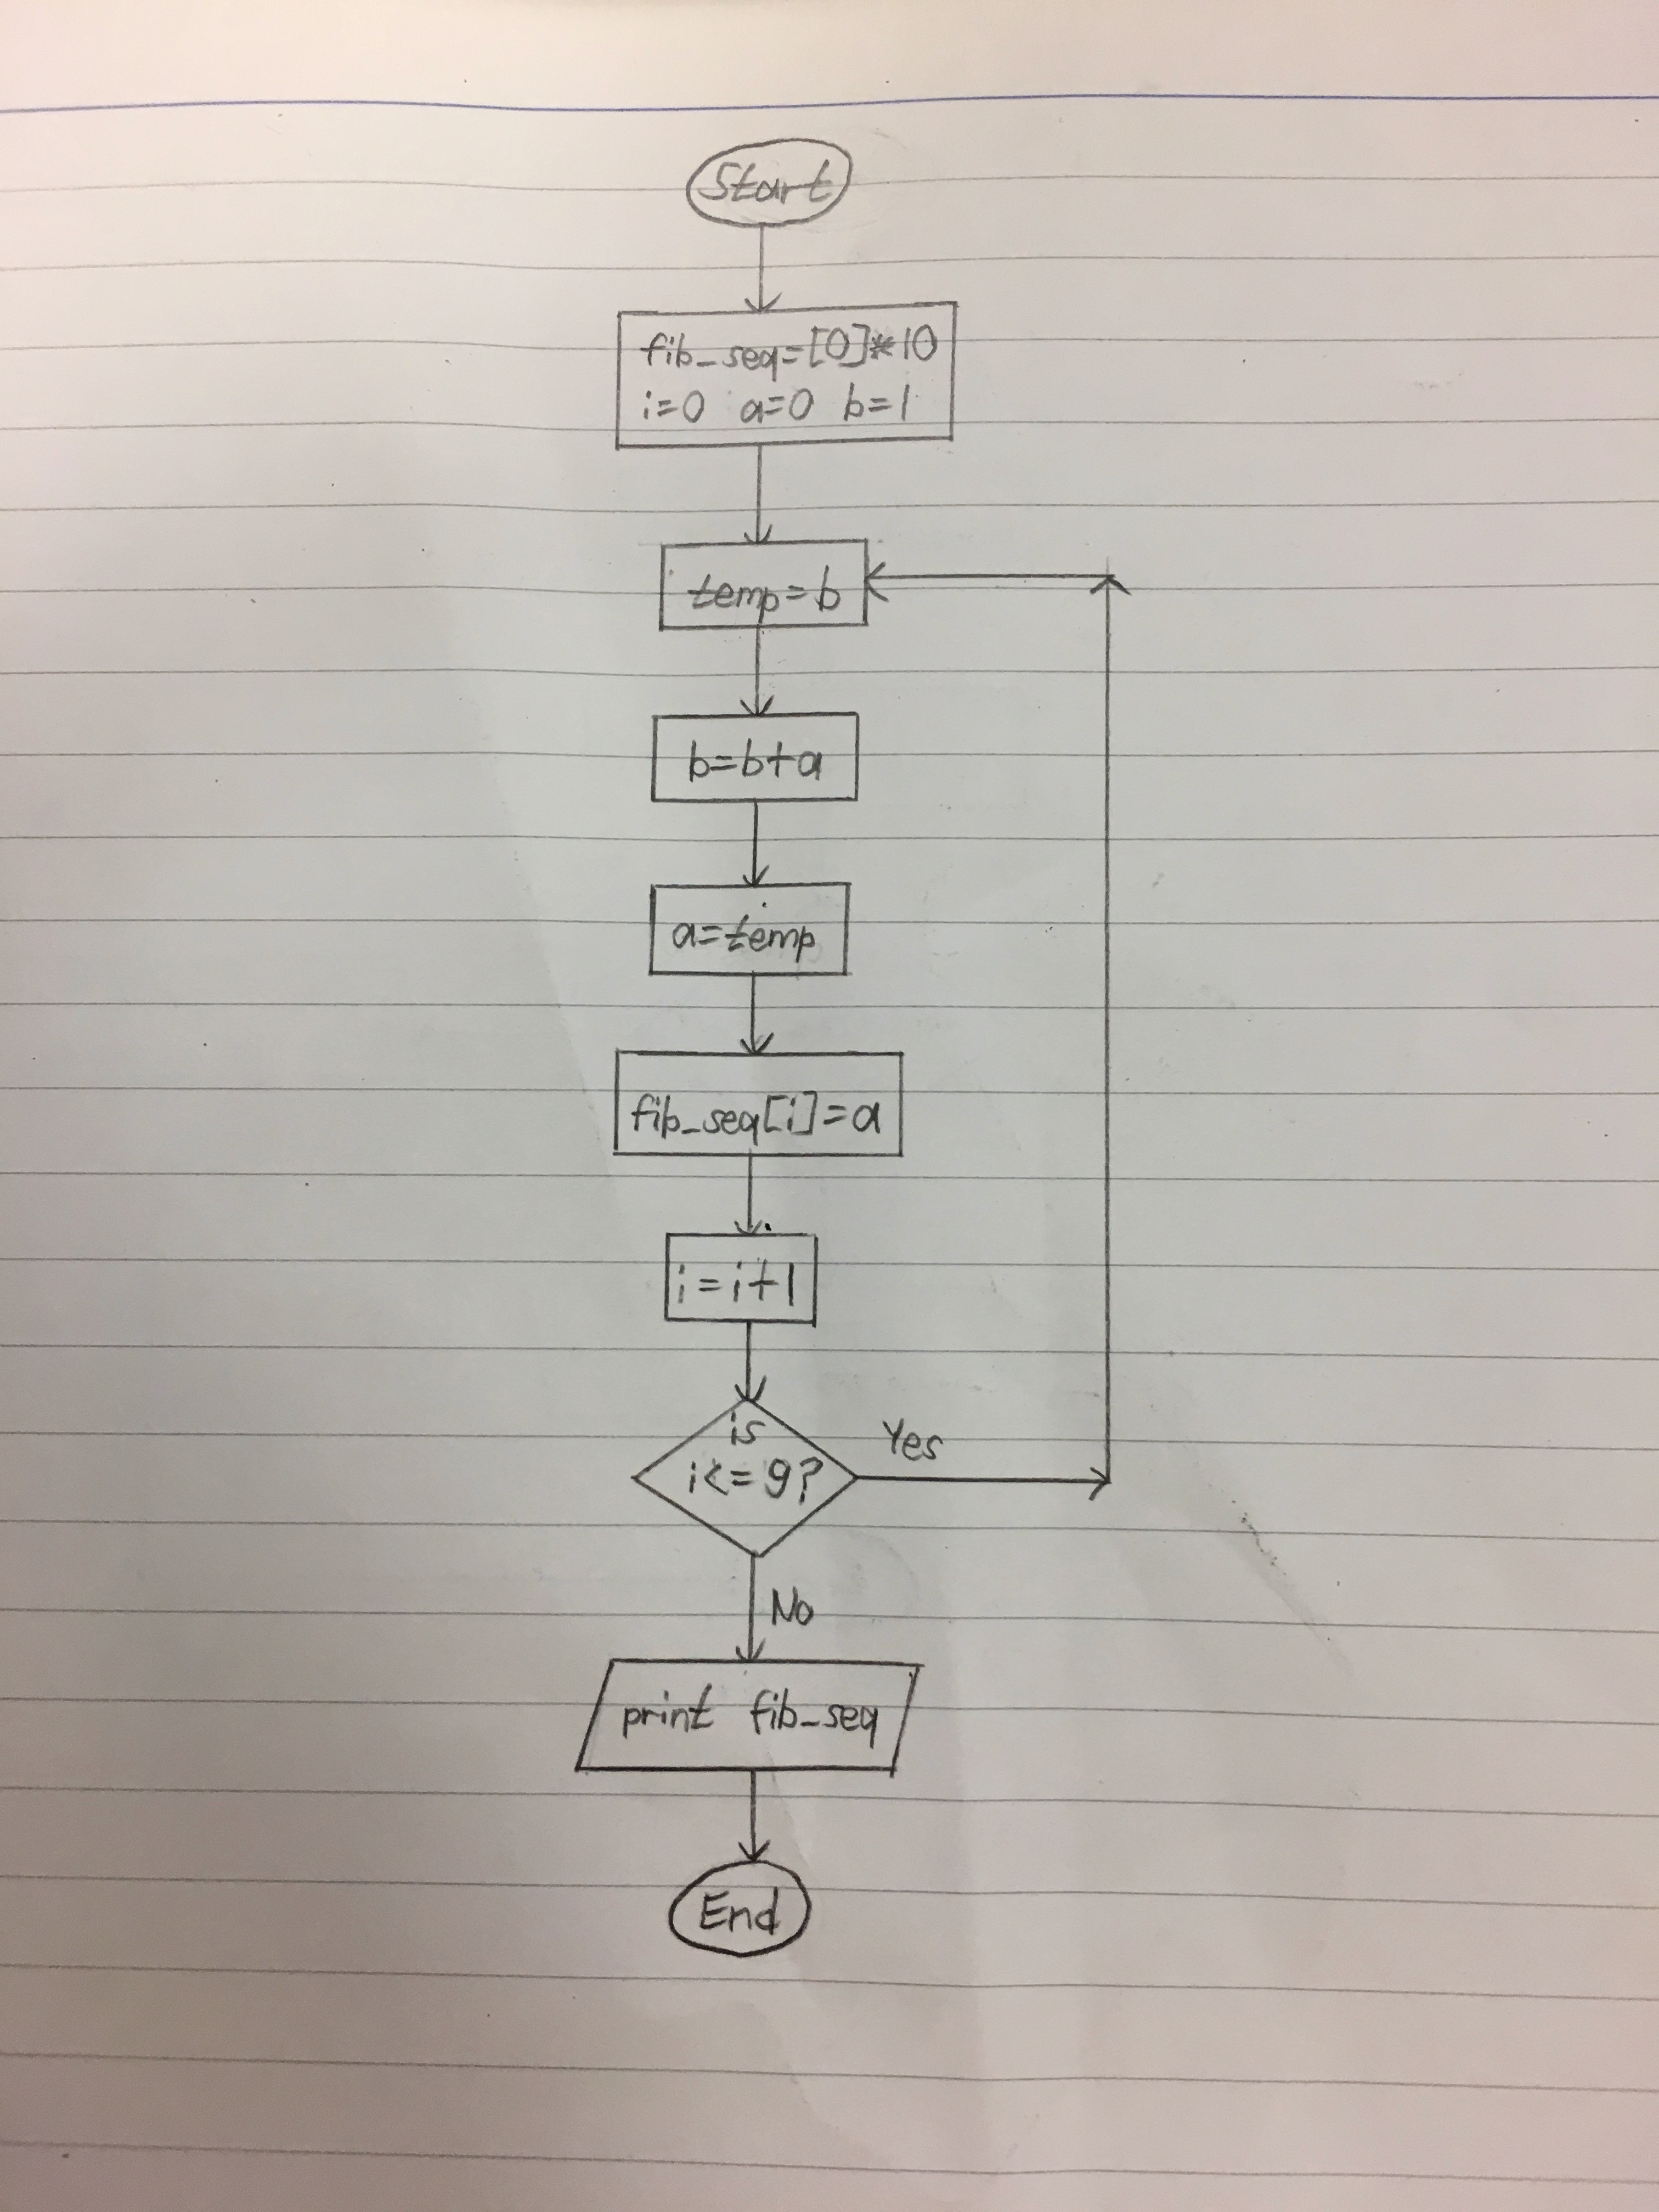 Start
fib_seq=[0]*10
i=0 a=0 b=1
temp=b
b=b+a
a=temp
fib_seq[i]=a
i=i+1
is
i<=9?
Yes
No
print fib_seq
End